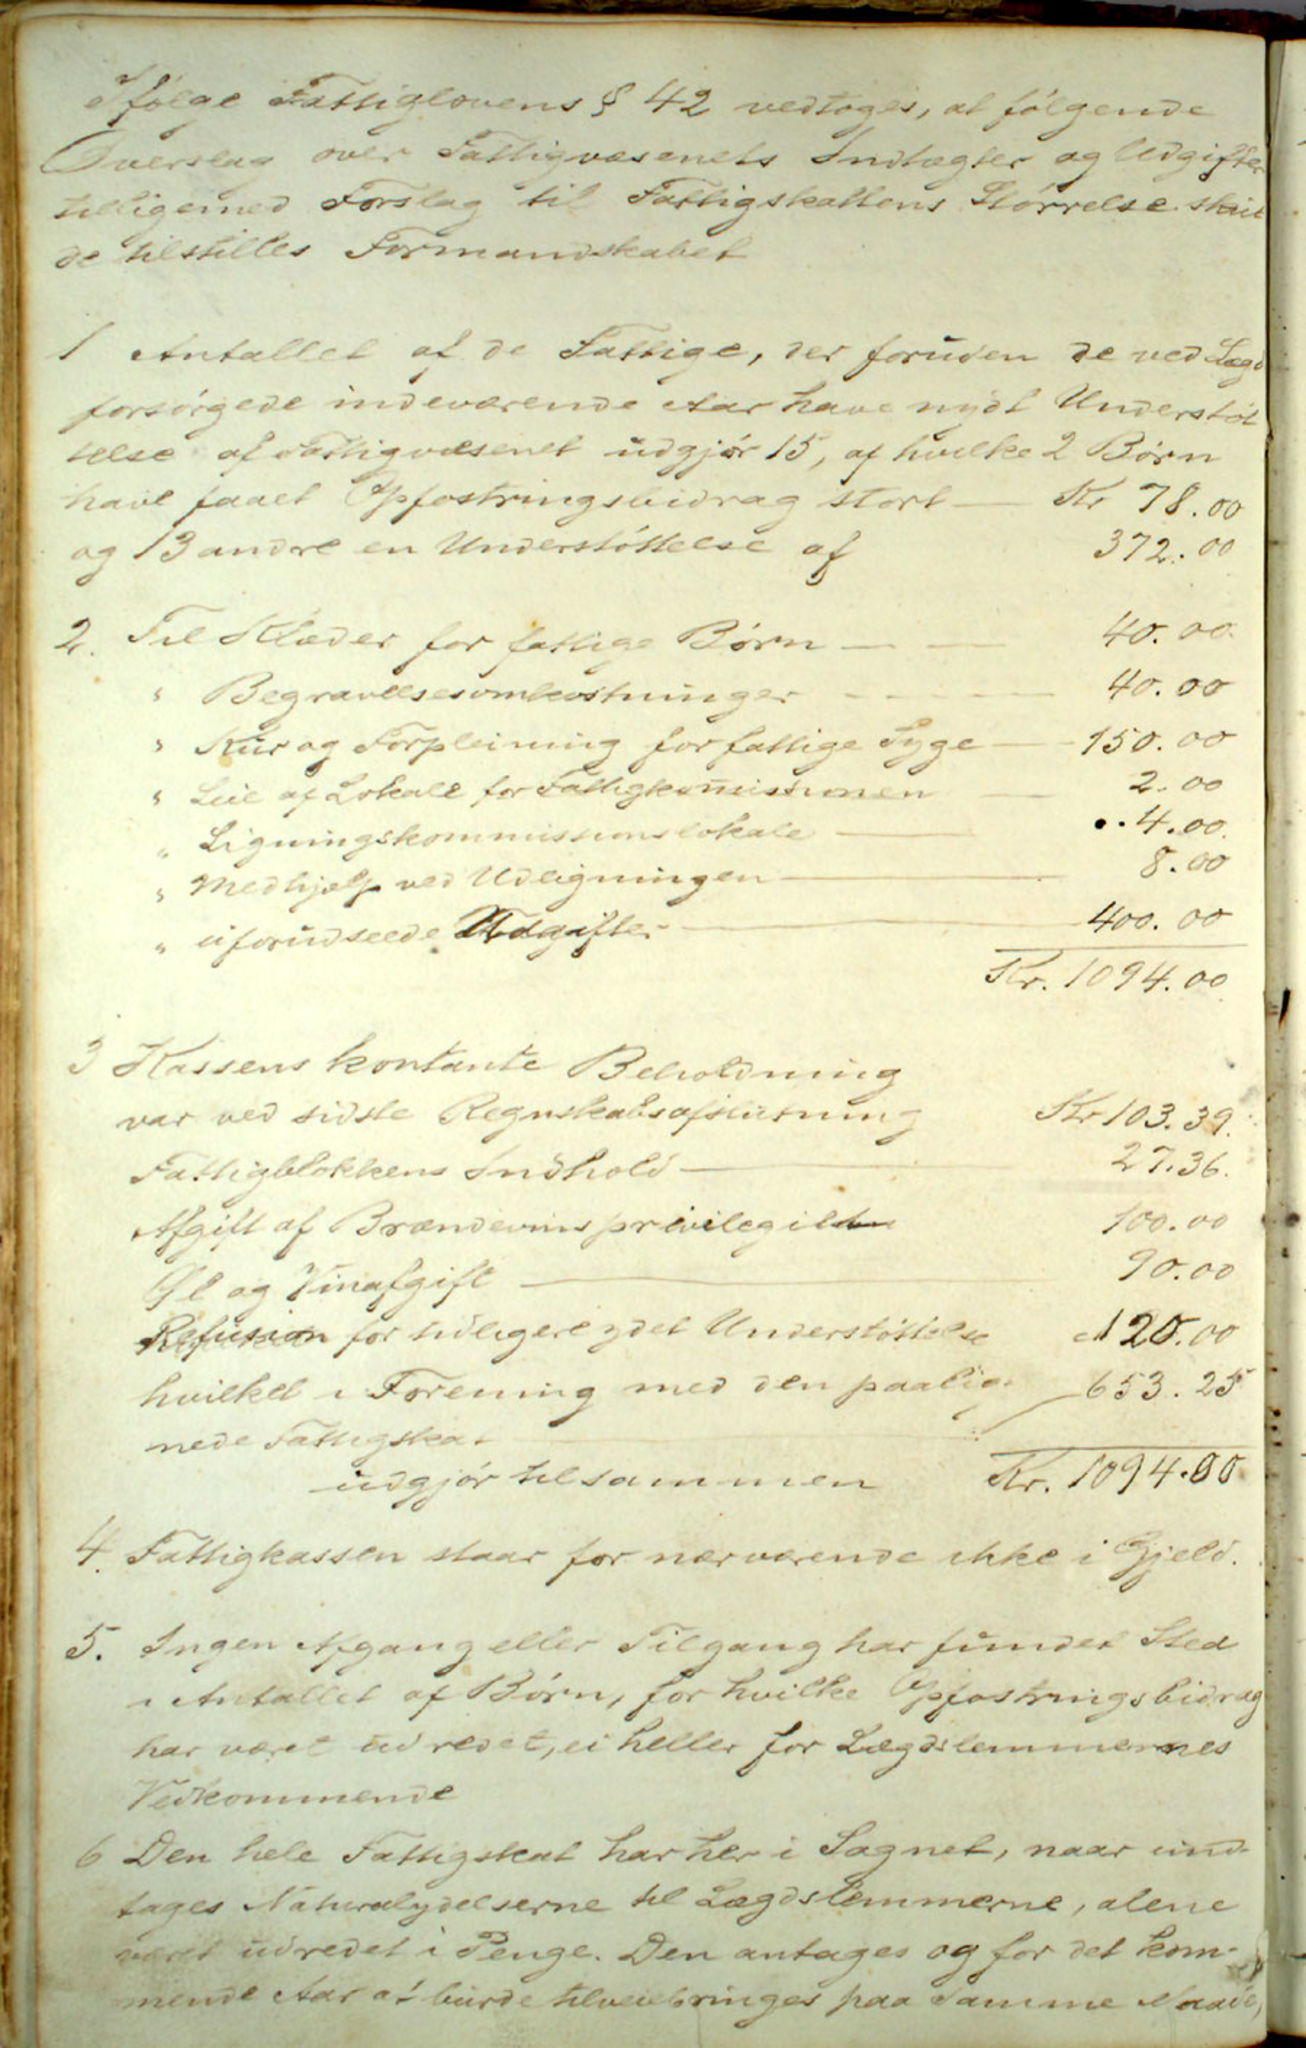 Ifølge Fattiglovens § 42 vedtoges, at følgende
Overslag over Fattigvæsenets Indtægter og Udgifter
tilligemed Forslag til Fattigskattens Størrelse skul
de tilstilles Formandskabet
1 Antallet af de Fattige, der foruden de ved Lægd
forsørgede indeværende Aar have nydt Understøt
telse af Fattigvæsenet udgjør 15, af hvilke 2 Børn
have faaet Opfostringsbidrag stort — Kr 78.00
og 13 andre en Understøttelse af 372.00
2. Til Klæder for fattige Børn — — 40.00
" Begravelsesomkostninger — — — 40.00
" Kur og Forpleining for fattige Syge — 150.00
" Leie af Lokale for Fattigkommissionen — 2.00
" Ligningskommissionslokale — 4.00
" Medhjælp ved Udligningen — 8.00
" uforudseede Udgifter — 400.00
Kr. 1094.00
3 Kassens kontante Beholdning
var ved sidste Regnskabsafslutning Kr 103.39.
Fattigblokkens Indhold — 27.36.
Afgift af Brændevinsprivilegiet 100.00
Øl og Vinafgift — 90.00
Refusion for tidligere ydet Understøttelse 120.00
hvilket i Forening med den paalig- 653.25
nede Fattigskat
udgjør tilsammen Kr. 1094.00
4. Fattigkassen staar for nærværende ikke i Gjeld.
5. Ingen Afgang eller Tilgang har fundet Sted
i Antallet af Børn, for hvilke Opfostringsbidrag
har været udredet, ei heller for Lægdslemmernes
Vedkommende
6 Den hele Fattigskat har her i Sognet, naar und-
tages Naturalydelserne til Lægdslemmerne, alene
været udredet i Penge. Den antages og for det kom-
mende Aar at burde tilveiebringes paa samme Maade,